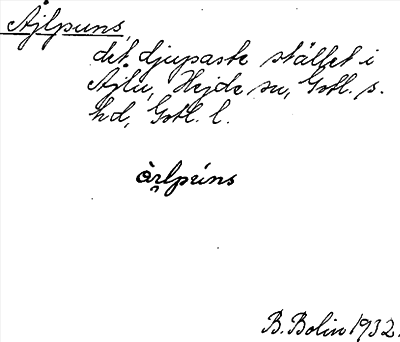 Ajlpuns,
det djupaste stället i
Ajlu, Hejde sn, Gotl. s.
hd, Gotl. l.
àrlpuns
B. Bolin 1932.